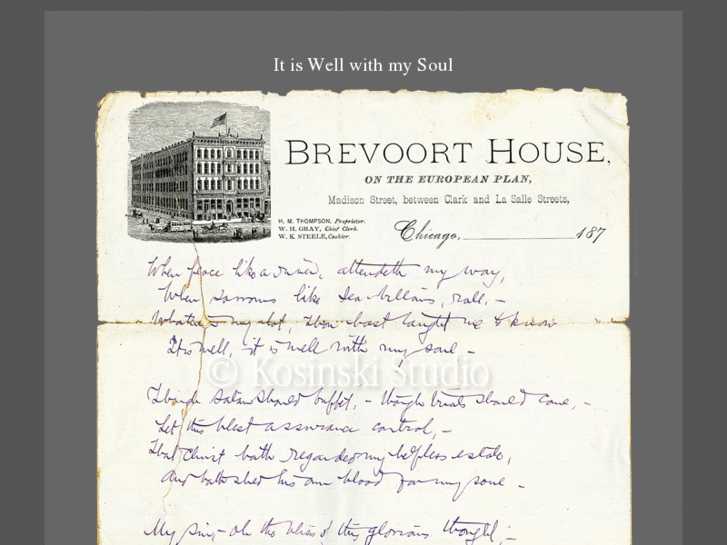 It is Well with my Soul
BREVOORT HOUSE,
ON THE EUROPEAN PLAN,
Madison Street, between Clark and La Salle Streets,
H. M. THOMPSON, Proprietor.
W. H. GRAY, Chief Clerk.
W. K. STEELE, Cashier.
Chicago, 187
When peace like a river, attendeth my way,
When sorrows like sea billows, roll, –
Whatever my lot, Thou hast taught me to know
It is well, it is well with my soul –
© Kosinski Studio
Though Satan should buffet, – though trials should come, –
Let this blest assurance control, –
That Christ hath regarded my helpless estate,
And hath shed his own blood for my soul –
My sin – oh the bliss of this glorious thought; –